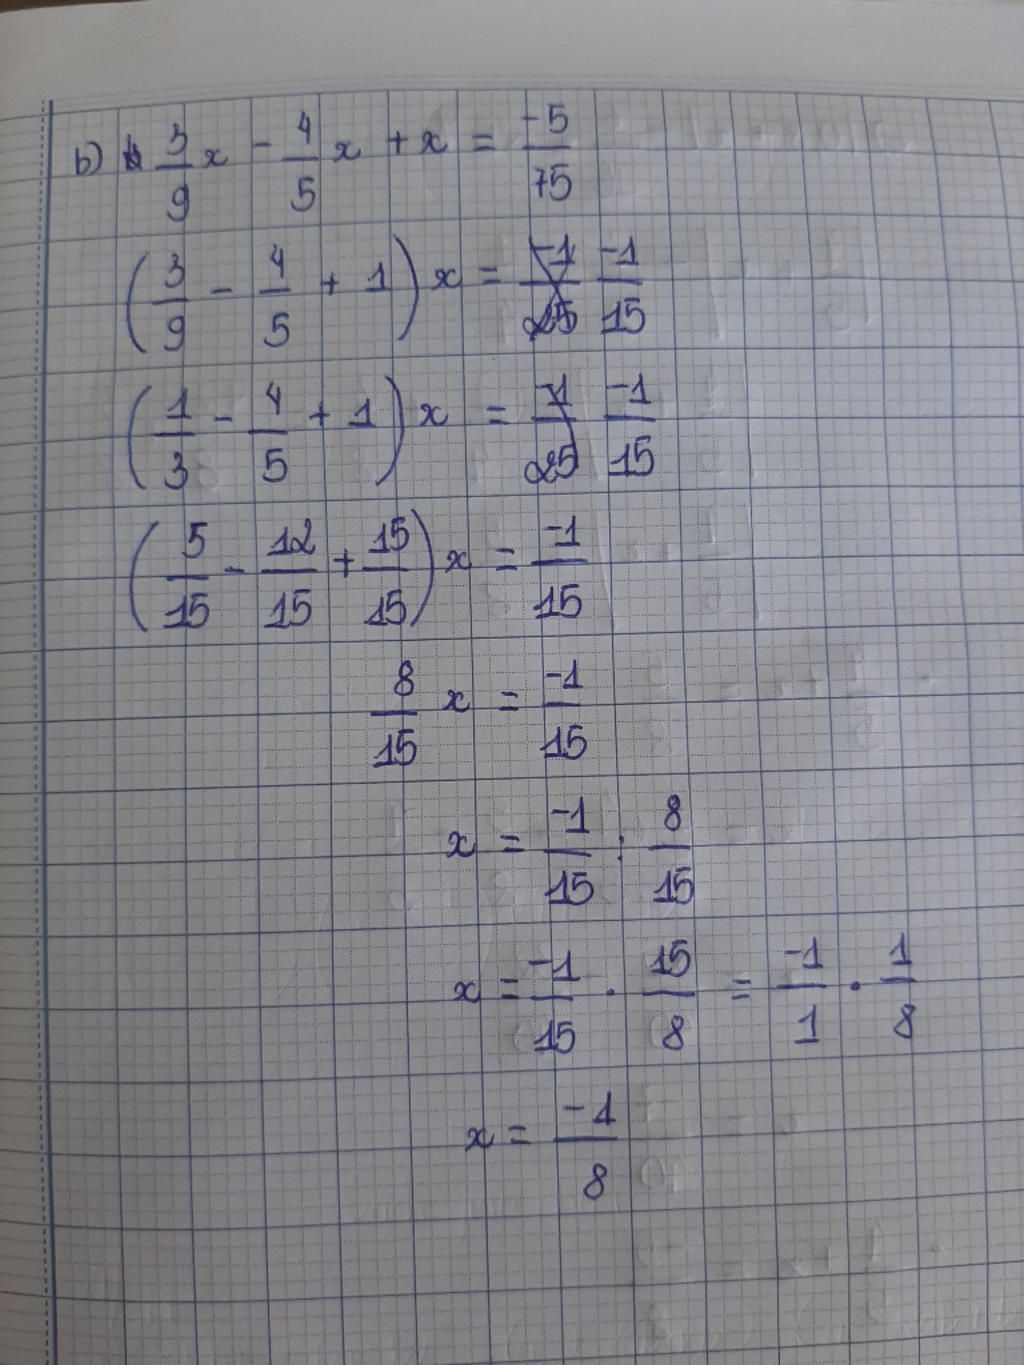 b) 3/9 x - 4/5 x + x = -5/75
(3/9 - 4/5 + 1) x = -1/25 -1/15
(1/3 - 4/5 + 1) x = -1/25 -1/15
(5/15 - 12/15 + 15/15) x = -1/15
8/15 x = -1/15
x = -1/15 : 8/15
x = -1/15 · 15/8 = -1/1 · 1/8
x = -1/8